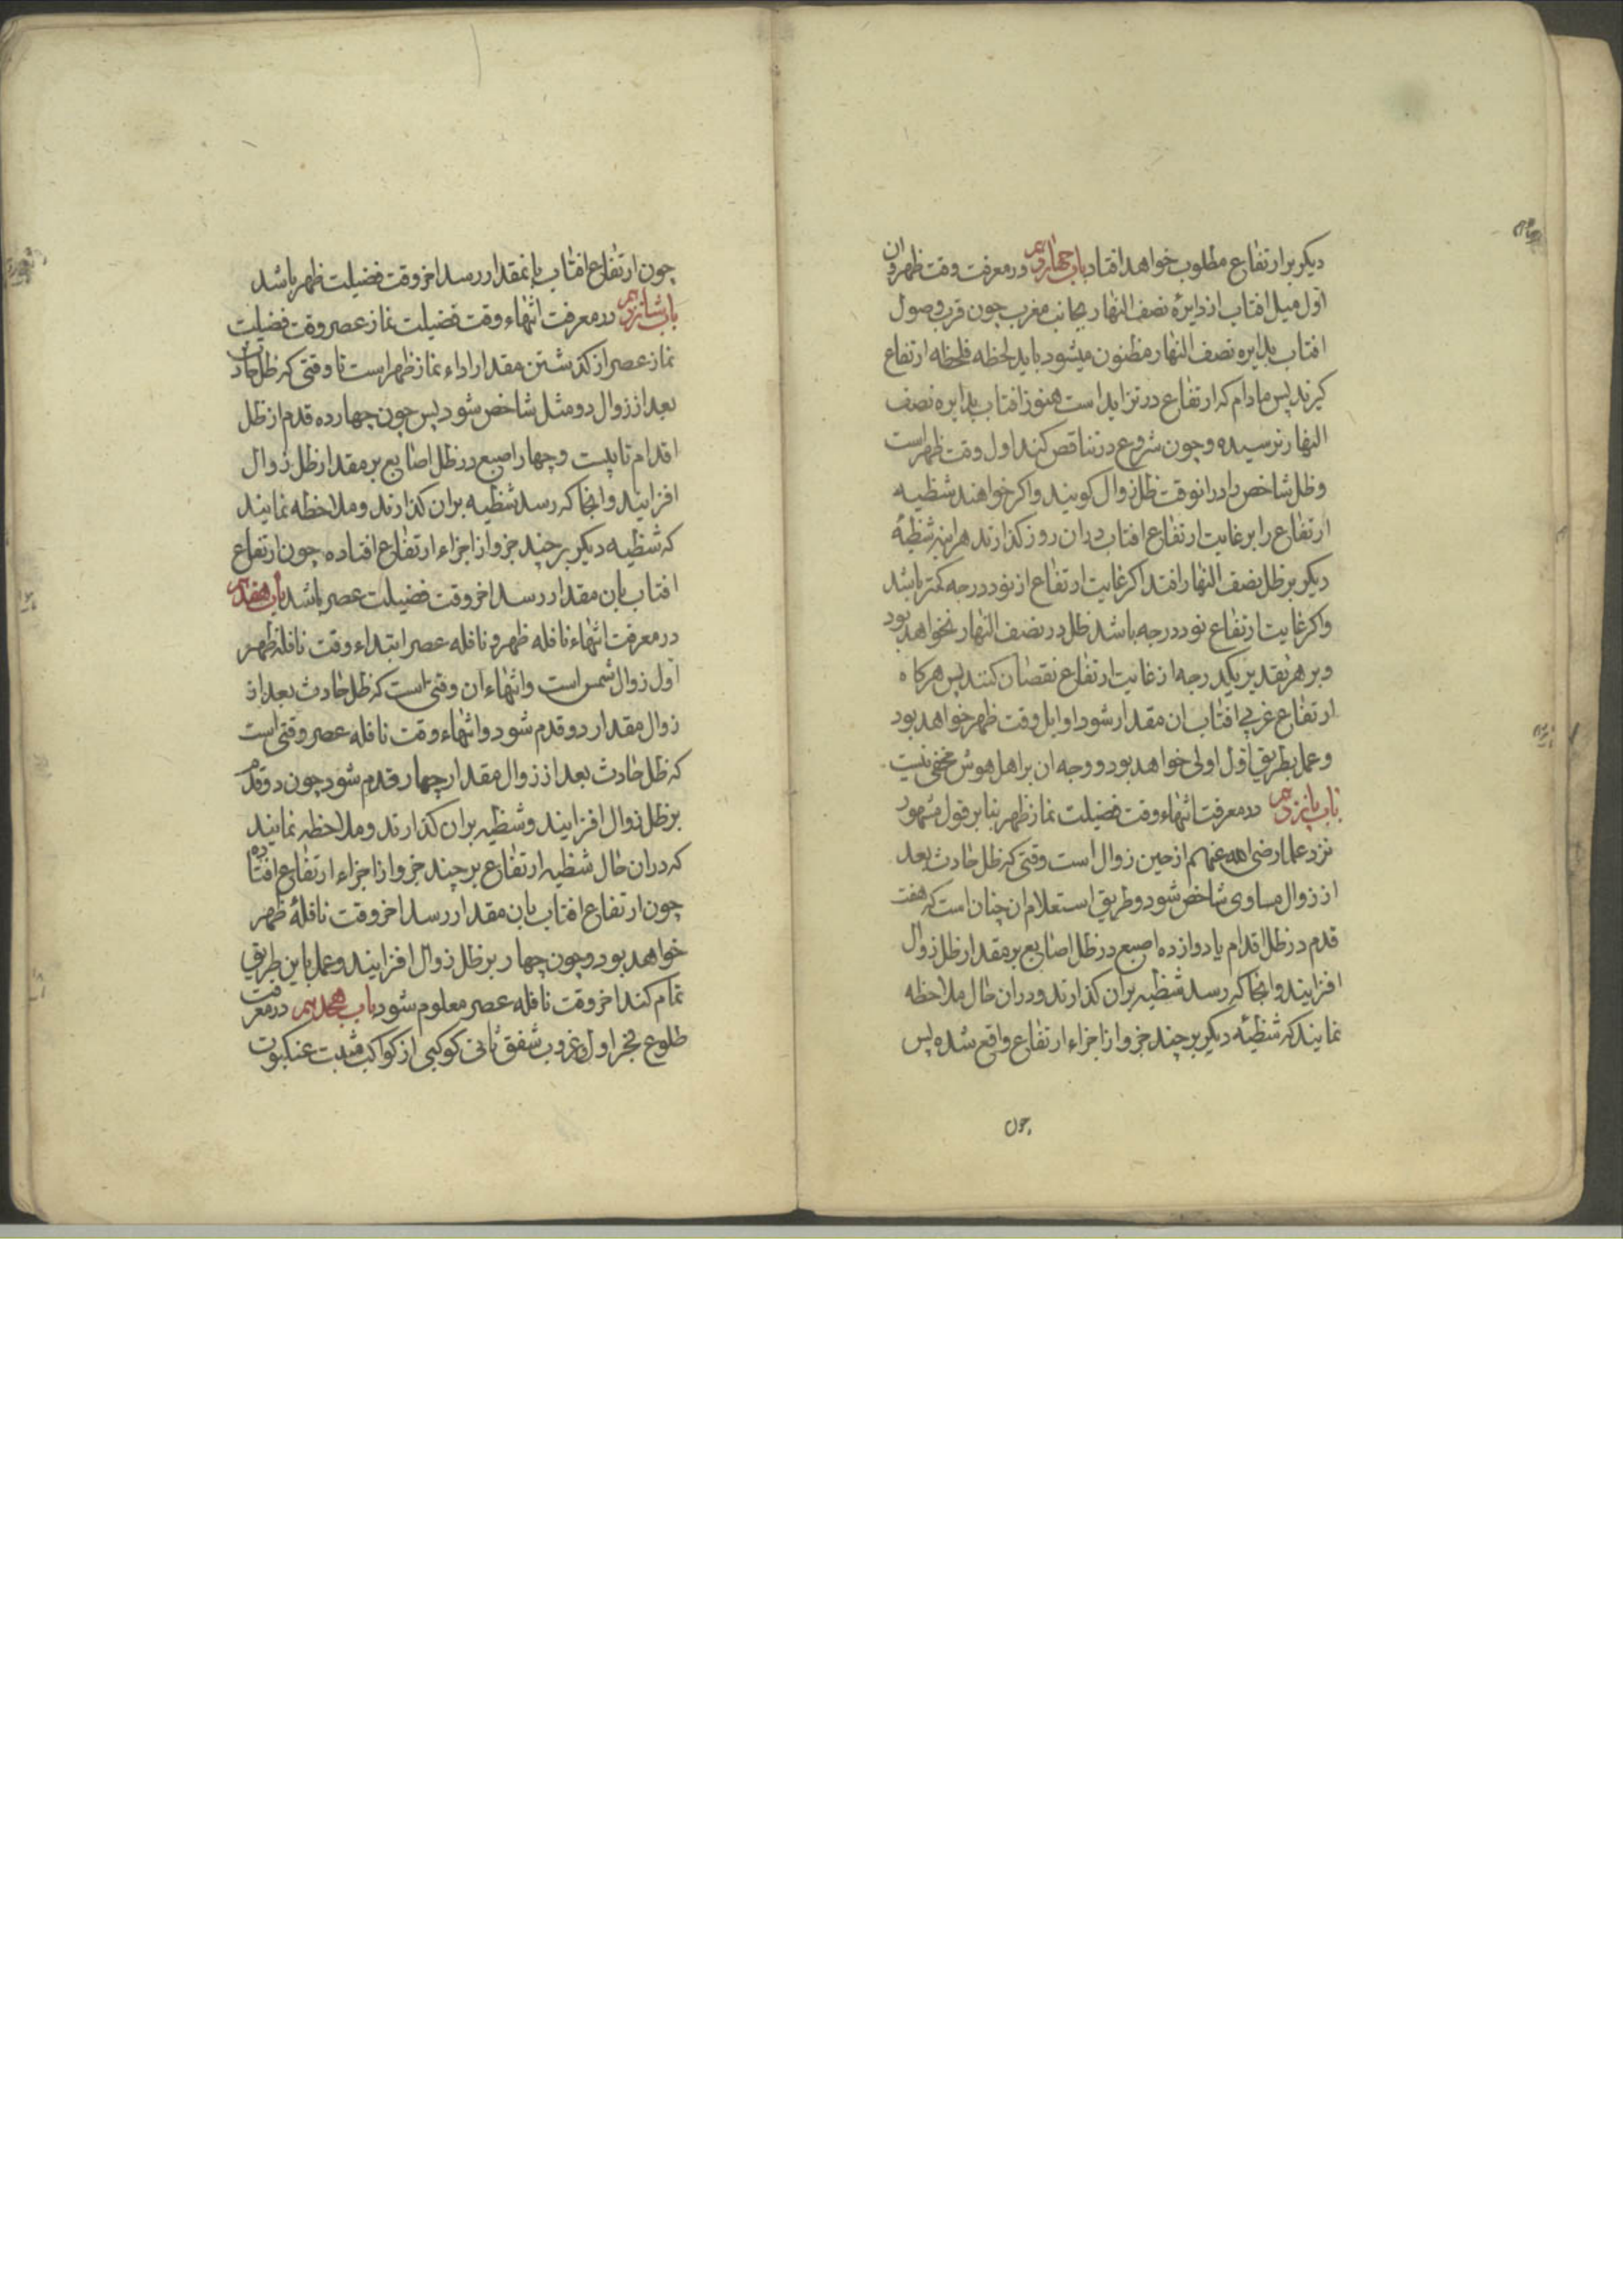 دیکر بر ارتفاع مطلوب خواهد افتاد باب چهاردهم در معرفت وقت ظهر و ان
اول میل افتاب از دایرهٔ نصف النهار بجانب مغرب چون قرب وصول
افتاب بدایره نصف النهار مظنون میشود باید لحظه فلحظه ارتفاع
کیرند پس مادام که ارتفاع در تزاید است هنوز افتاب بدایره نصف
النهار نرسیده و چون شروع در تناقص کند اول وقت ظهر است
وظل شاخص را در انوقت ظل زوال کویند و اکر خواهند شظیه
ارتفاع را بر غایت ارتفاع افتاب در ان روز کذارند هراینه شظیهٔ
دیکر بر ظل نصف النهار افتد اکر غایت ارتفاع از نود درجه کمتر باشد
واکر غایت ارتفاع نود درجه باشد ظل در نصف النهار نخواهد بود
وبر هر تقدیر یکدرجه از غایت ارتفاع نقصان کنند پس هرکاه
ارتفاع غربی افتاب ان مقدار شود اوایل وقت ظهر خواهد بود
وعمل بطریق اول اولی خواهد بود و وجه ان بر اهل هوش مخفی نیست
باب پانزدهم در معرفت انتهاء وقت فضیلت نماز ظهر بنا بر قول مشهور
نزد علما رضی الله عنهم از حین زوال است وقتی که ظل حادث بعد
از زوال مساوی شاخص شود وطریق استعلام ان چنان است که هفت
قدم در ظل اقدام یا دوازده اصبع در ظل اصابع بر مقدار ظل زوال
افزایند وانجا که رسد شظیه بران کذارند ودران حال ملاحظه
نمایند که شظیهٔ دیکر بر چند جزو از اجزاء ارتفاع واقع شده پس
چون
چون ارتفاع افتاب بانمقدار رسد اخر وقت فضیلت ظهر باشد
باب شانزدهم در معرفت انتهاء وقت فضیلت نماز عصر وقت فضیلت
نماز عصر از کذشتن مقدار اداء نماز ظهر است تا وقتی که ظل حادث
بعد از زوال دو مثل شاخص شود پس چون چهارده قدم از ظل
اقدام تا بیست وچهار اصبع در ظل اصابع بر مقدار ظل زوال
افزایند وانجا که رسد شظیه بران کذارند وملاحظه نمایند
که شظیه دیکر بر چند جزو از اجزاء ارتفاع افتاده چون ارتفاع
افتاب بان مقدار رسد اخر وقت فضیلت عصر باشد باب هفدهم
در معرفت انتهاء نافله ظهر و نافله عصر ابتداء وقت نافله ظهر
اول زوال شمس است وانتهاء ان وقتی است که ظل حادث بعد از
زوال مقدار دو قدم شود وانتهاء وقت نافله عصر وقتی است
که ظل حادث بعد از زوال مقدار چهار قدم شود چون دو قدم
بر ظل زوال افزایند وشظیه بران کذارند وملاحظه نمایند
که دران حال شظیه ارتفاع بر چند جزو از اجزاء ارتفاع افتاده
چون ارتفاع افتاب بان مقدار رسد اخر وقت نافلهٔ ظهر
خواهد بود وچون چهار بر ظل زوال افزایند وعمل باین طریق
تمام کند اخر وقت نافله عصر معلوم شود باب هجدهم در معرفت
طلوع فجر اول وغروب شفق ثانی کوکبی از کواکب مثبت عنکبوت